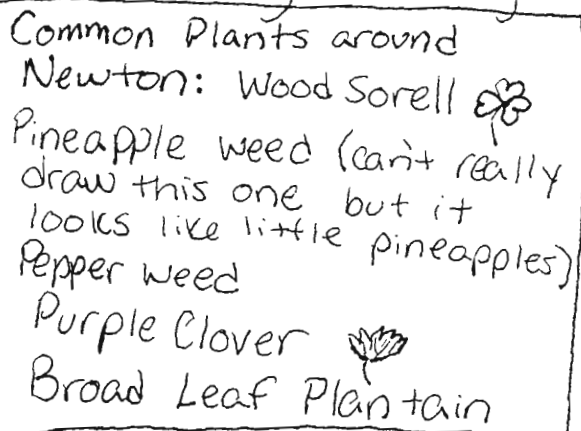 Common Plants around
Newton: Wood Sorell
Pineapple weed (can't really
draw this one but it
looks like little pineapples)
Pepper weed
Purple Clover
Broad Leaf Plantain